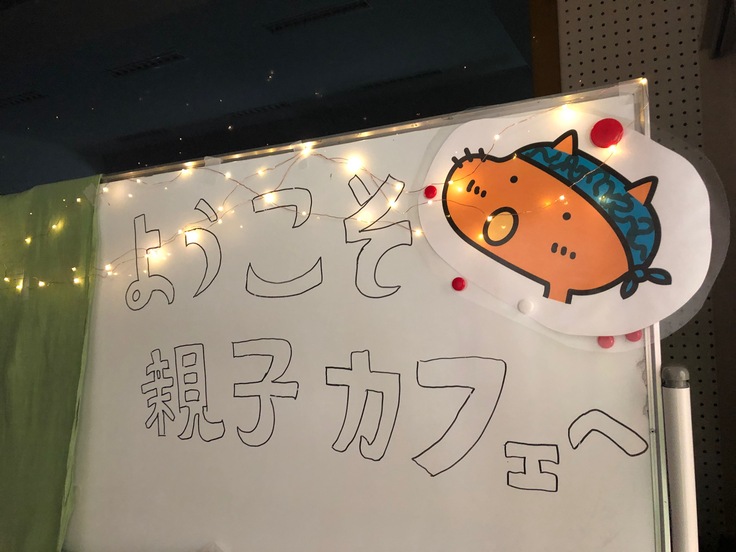 ようこそ
親子カフェへ